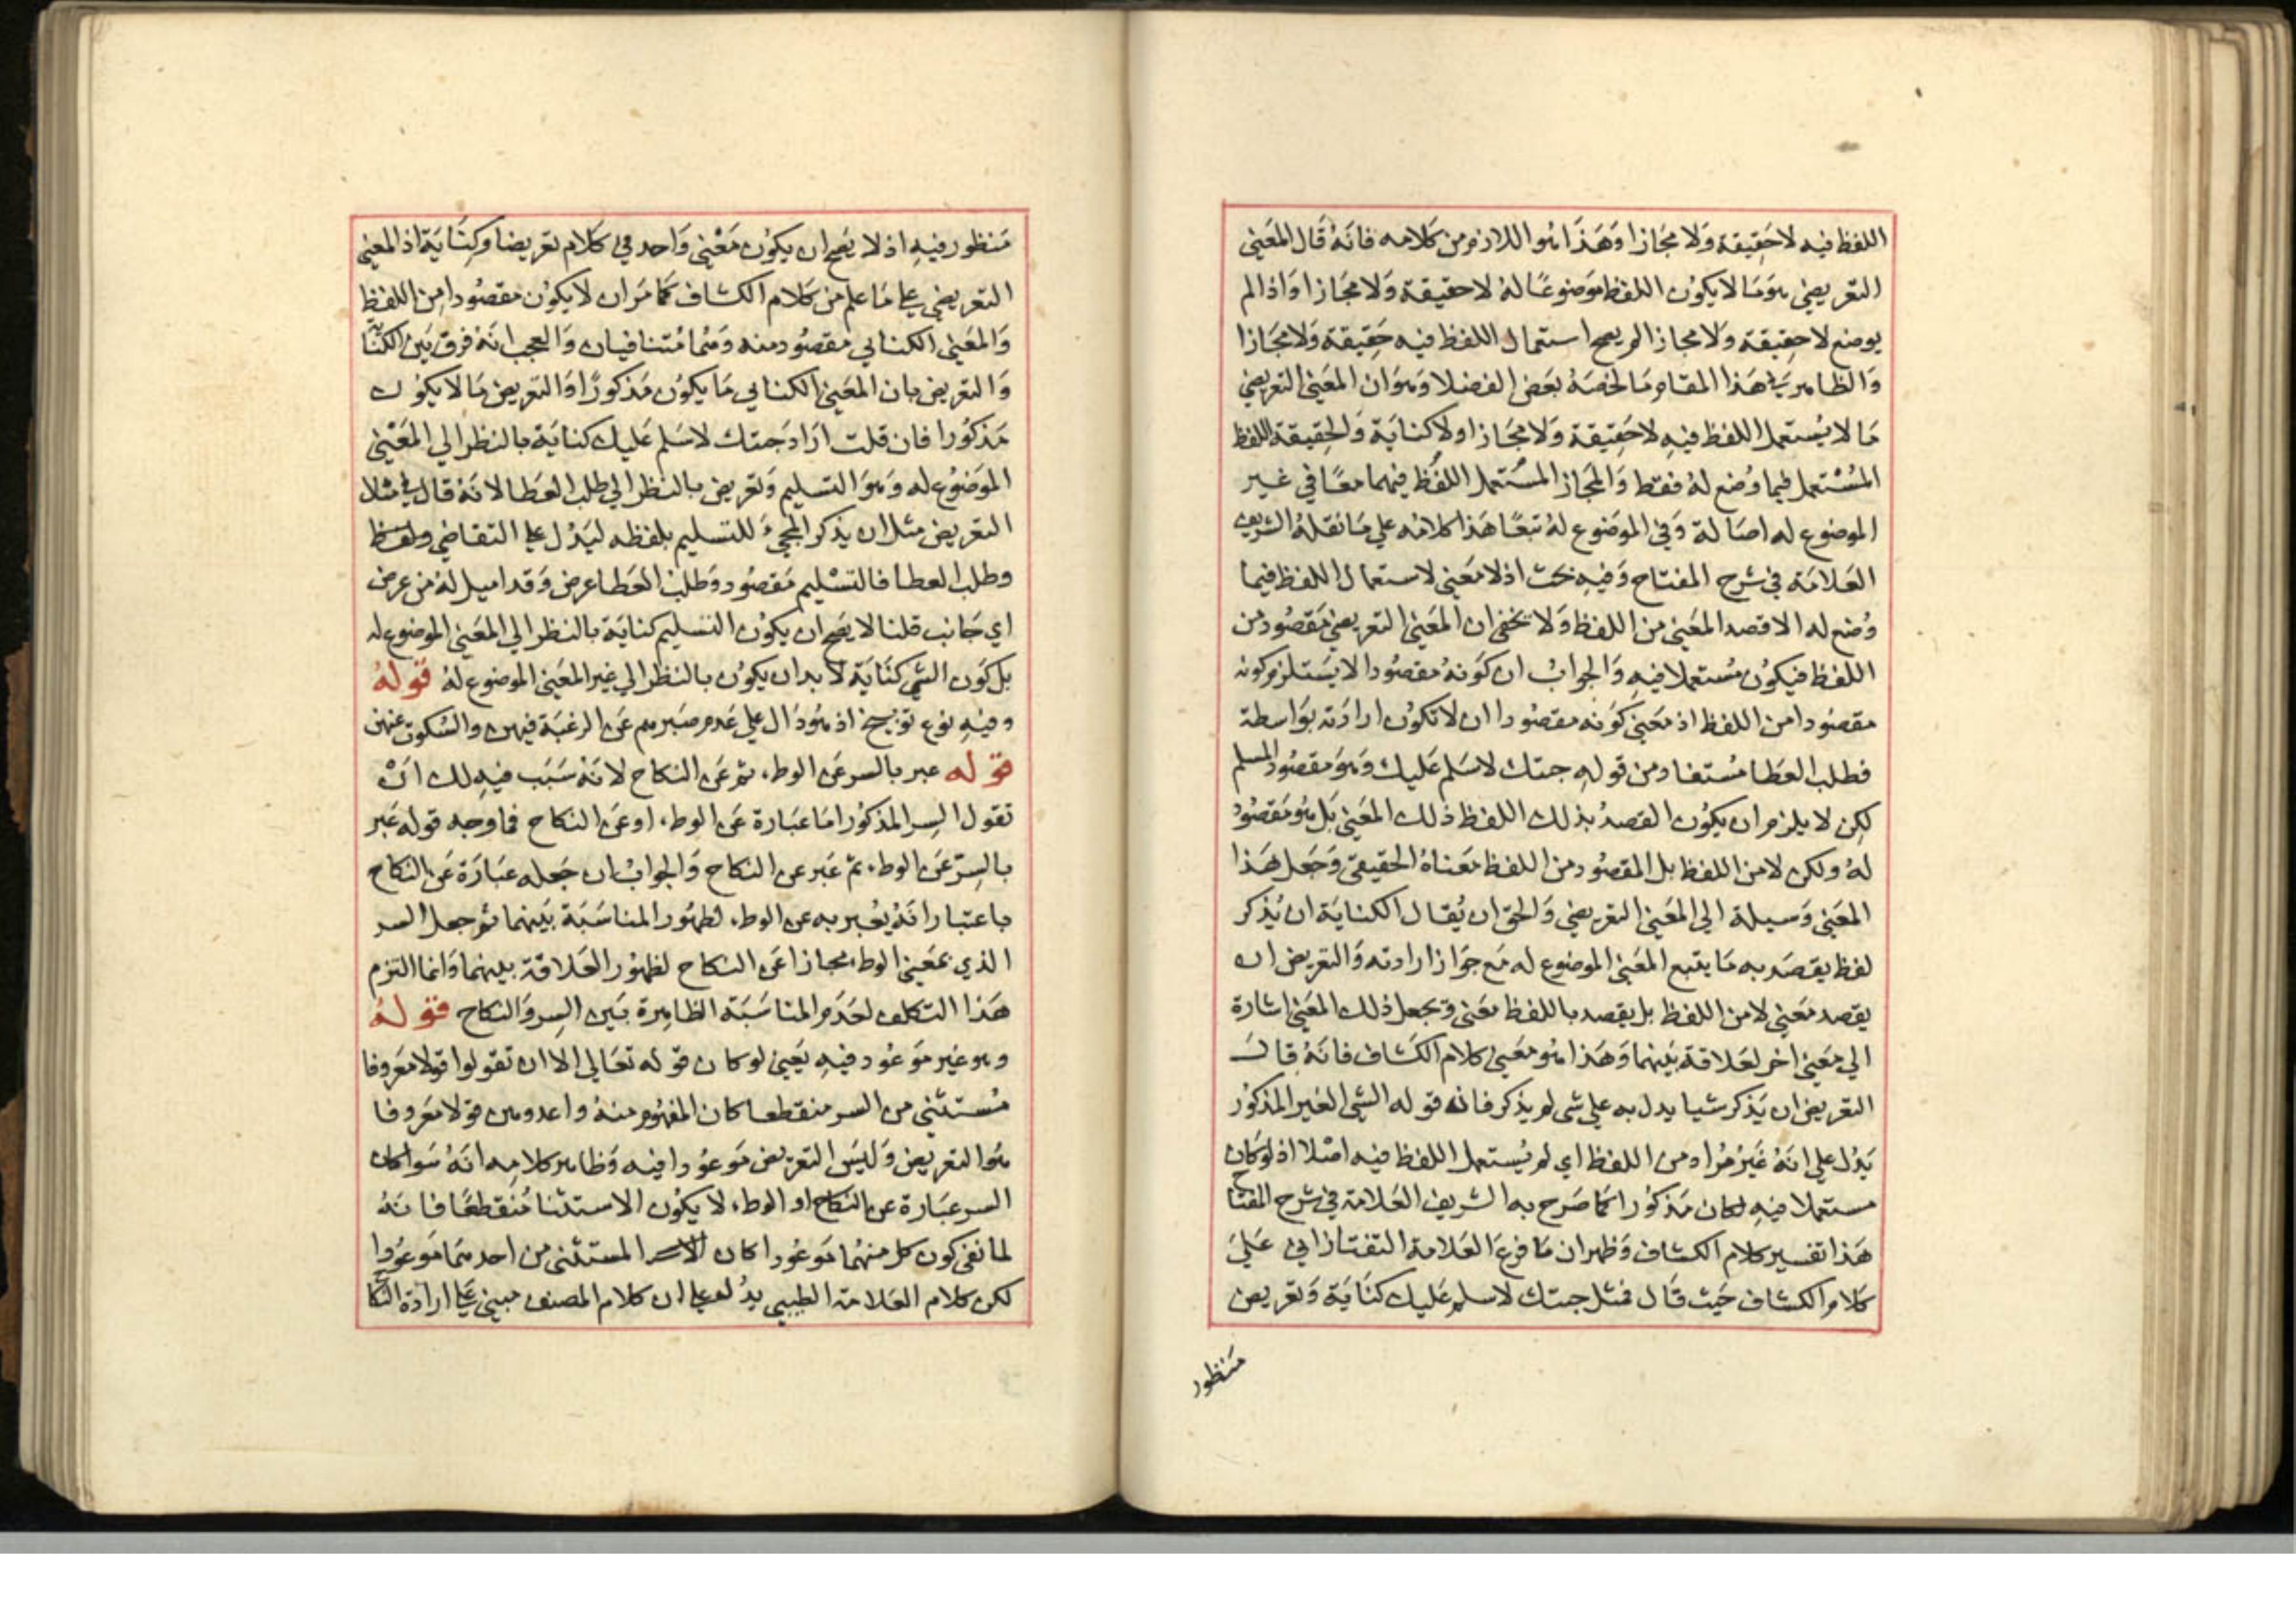 اللفظ فيه لا حَقِيقة وَلا مجَازا وَهَذا هُو اللازم من كلامه فانهُ قَال المَعنى
التعريضي هوَ مَا لا يكون اللفظ مَوضوعًا لهُ لا حقيقة وَلا مجَازا وَاذا لم
يوضع لا حقِيقة وَلا مجازا لم يصح استعمال اللفظ فيه حَقِيقة وَلا مجَازا
وَالظاهر في هَذا المقام مَا لخصَهُ بعَض الفضلا وَهوَ ان المعَنى التعريضي
مَا لا يُستعمل اللفظ فيهِ لا حَقِيقة وَلا مجَازا ولا كنايَة وَالحقِيقة اللفظ
المُسْتعمل فيما وُضع لهُ فقط وَالمجَاز المسُتعمل اللفظ فيهما معًا في غير
الموضوع له اصَالة وَفي الموَضوع لهُ تبعًا هَذا كلامُه علي مَا نقلهُ الشريف
العَلامَة في شرح المفتاح وَفيهِ بحَث اذ لا معَنى لاستعمال اللفظ فيما
وُضع له الا قصد المعَنى من اللفظ وَلا يخفى ان المعَنى التعريضي مَقصُود من
اللفظ فيكوُن مُستعملا فيهِ وَالجوابُ ان كَونهُ مقصُودا لا يَستلزم كونه
مقصُودا من اللفظ اذ معَنى كوَنه مقصُودا ان لا تكوُن ارادَته بوَاسطة
فطلب العطا مُستفاد من قولهِ جئتك لاسَلم عَليك وَهوَ مقصُود المسلم
لكِن لا يلزم ان يكوُن القصدُ بذلك اللفظ ذلك المعَنى بَل هُو مَقصُود
لهُ ولكن لا من اللفظ بل المقصُود من اللفظ مَعناهُ الحقيقي وَجَعل هَذا
المعَنى وَسيلة الى المعَنى التعريضي وَالحق ان يُقال الكنايَة ان يُذكر
لفظ يقصَد به مَا يتبع المعَنى الموضوع له مَع جوَاز ارادته وَالتعريض ان
يقصد معَنى لا من اللفظ بل يقصد باللفظ معَنى وَيجعل ذلك المعَنى اشارة
الي معَنى اخر لعَلاقة بَينهما وَهَذا هُو معَنى كلام الكشاف فانهُ قال
التعريض ان يَذكر شيا يدل به علي شي لم يذكر فان قوله الشي الغير المذكوُر
يَدُل علي انهُ غَيرُ مُراد من اللفظ اي لم يُستعمل اللفظ فيه اصْلا اذ لو كان
مستعملا فيهِ لكان مَذكوُرا كمَا صَرح به الشريف العَلامة في شرح المفتاح
هَذا تفسير كلام الكشاف وَظهر ان مَا فرع العَلامة التفتازاني عَلي
كلام الكشاف حَيث قَال فمثل جئتك لاسلم عَليك كنَايَة وَتعريض
منظور
مَنظور فيهِ اذ لا يَصح ان يكوُن مَعْنى وَاحد في كَلام تعريضا وكِنَايَة اذ المعَنى
التعريضي علي مَا علم من كَلام الكشاف كمَا مَر ان لا يكوُن مقصُودا من اللفظ
وَالمعَنى الكنايي مقصُود منه وَهُما مُتنافيان وَالعجب انهُ فرق بَين الكنَاية
وَالتعريض بان المعَنى الكنايي مَا يكوُن مَذكورًا وَالتعريض مَا لا يكوُن
مَذكوُرا فان قلت ارَاد جَئتك لاسَلم عَليك كنايَة بالنظر الي المَعْنى
الموَضوُع له وَهوَ التسليم وَتعريض بالنظر الي طلب العَطا لانهُ قال في مثلا
التعريض مثل ان يذكر المجيَ للتسليم بلفظه ليَدُل علي التقاضي ولفظ
وطلب العطا فالتسْليم مَقصُود وَطلب العَطا عرض وَقد اميل لهُ من عرض
اي جَانب قلنا لا يصَح ان يكوُن التسليم كنايَة بالنظر الي المعَنى الموضوع له
بل كَون الشي كنَايَة لا بد ان يكوُن بالنظر الي غير المعَنى الموضوع لهُ قولهُ
وفيهِ نوع توبيخ اذ هُو دَال علي عَدم صَبرهم عَن الرغبَة فيهن والسُكوت عنهن
قوله عبر بالسر عَن الوطء ثم عَن النكاح لانهُ سَبَب فيهِ لك انْ
تقول السِر المذكوُر امَا عبَارة عَن الوطء او عَن النكاح فما وجه قوله عَبر
بالسِرّ عَن الوطء ثم عَبر عن النكاح وَالجوابُ ان جَعله عبَارَة عَن النكاح
باعتبار انهُ يُعبر به عن الوطء لظهُور المناسَبَة بَينهما ثم جعل السر
الذي بمعَنى الوطء مجازا عَن النكاح لظهوُر العَلاقة بينهما وَانما التزم
هَذا التكلف لعَدَم المناسَبَة الظاهِرة بَين السِر وَالنكاح قولهُ
وهو غير موَعُود فيهِ يَعنِي لو كان قوله تعَالي الا ان تقولوا قولا معَروفا
مُستثني من السر منقطعا كان المفهُوم منهُ واعدوهن قولا مَعروفا
هُو التعريض وَليَس التعريض مَوعوُدا فيه وَظاهر كلامِه انهُ سَوا كان
السر عبَارة عن النكاح او الوطء لا يكوُن الاستثنا مُنقطعًا فانهُ
لما نفي كون كل منهُما موَعوُدا كان المستثني من احدهمَا مَوعُودا
لكن كلام العَلامة الطيبي يدُل علي ان كلام المصنف مبني عَلي ارادَة النكاح